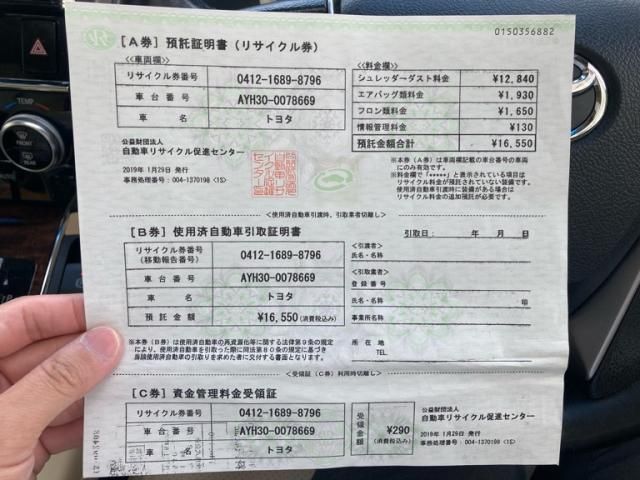 0150356882
[A券] 預託証明書(リサイクル券)
<<車両欄>>
リサイクル券番号 0412-1689-8796
車台番号 AYH30-0078669
車名 トヨタ
<<料金欄>>
シュレッダーダスト料金 ¥12,840
エアバッグ類料金 ¥1,930
フロン類料金 ¥1,650
情報管理料金 ¥130
預託金額合計 ¥16,550
公益財団法人
自動車リサイクル促進センター
2019年 1月29日 発行
事務処理番号:004-1370198 <1S>
※本券(A券)は車両欄記載の車台番号の車両
にのみ有効です。
※料金欄で「*****」と表示されている項目は
リサイクル料金が預託されていない装備です。
使用済自動車引渡時に装備がある場合は
リサイクル料金の追加預託が必要です。
<使用済自動車引渡時、引取業者切離し>
[B券] 使用済自動車引取証明書
引取日: 年 月 日
リサイクル券番号
(移動報告番号) 0412-1689-8796
車台番号 AYH30-0078669
車名 トヨタ
預託金額 ¥16,550(消費税込み)
<引渡者>
氏名・名称
<引取業者>
登録番号
氏名・名称 印
事業所名称
所在地
TEL.
※本券(B券)は使用済自動車の再資源化等に関する法律第9条の規定
により、使用済自動車を引取った際に同法第80条の規定に基づき
当該使用済自動車の引取りを求めた者に交付する書面となります。
<受領証(C券)利用時切離し>
[C券] 資金管理料金受領証
リサイクル券番号 0412-1689-8796
車台番号 AYH30-0078669
車名 トヨタ
受領金額 ¥290
(消費税込み)
公益財団法人
自動車リサイクル促進センター
2019年 1月29日 発行
事務処理番号:004-1370198 <1S>
TEMP
FRONT
REAR